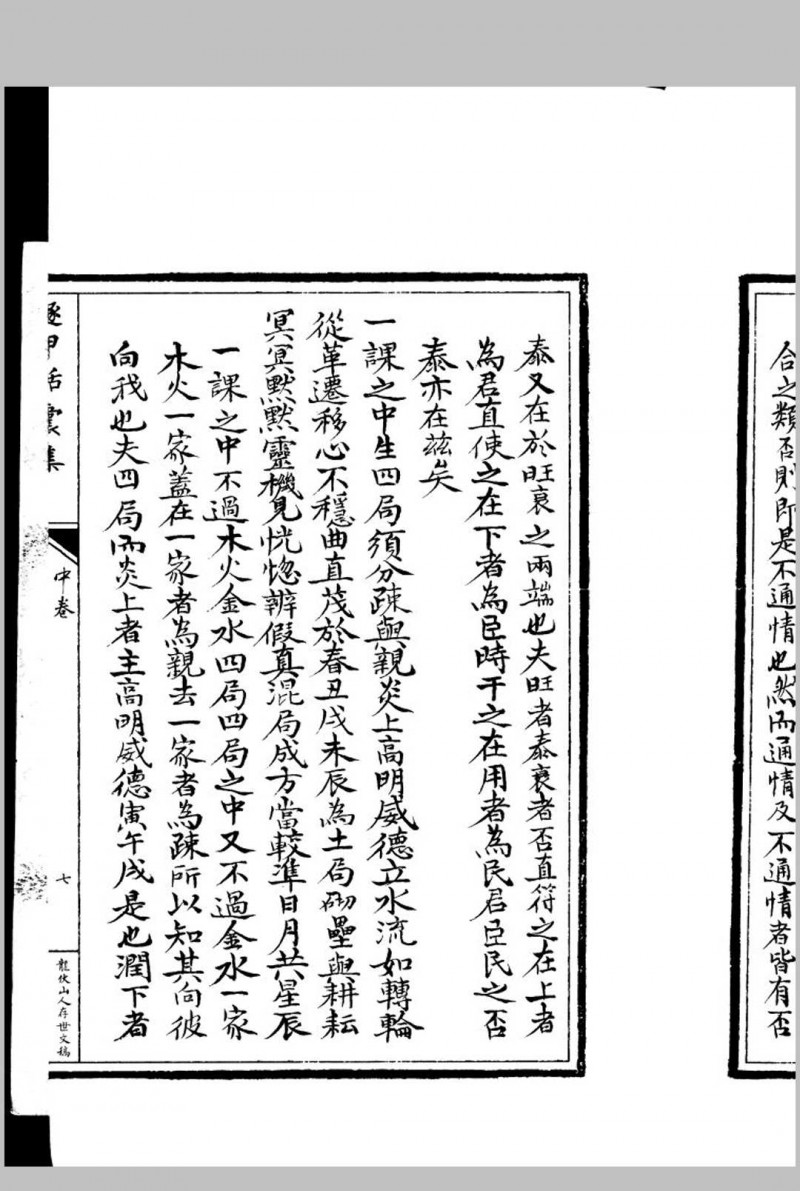 合之類否則即是不通情也然而通情及不通情者皆有否
泰又在於旺衰之兩端也夫旺者泰衰者否直符之在上者
為君直使之在下者為臣時干之在用者為民君臣民之否
泰亦在茲矣
一課之中生四局須分疎與親炎上高明威德立水流如轉輪
從革遷移心不穩曲直茂於春丑戌未辰為土局砌壘與耕耘
冥冥默默靈機見恍惚辨假真混局成方當較準日月共星辰
一課之中不過木火金水四局四局之中又不過金水一家
木火一家蓋在一家者為親去一家者為疎所以知其向彼
向我也夫四局而炎上者主高明威德寅午戌是也潤下者
遁甲括囊集
中卷
七
龍伏山人存世文稿